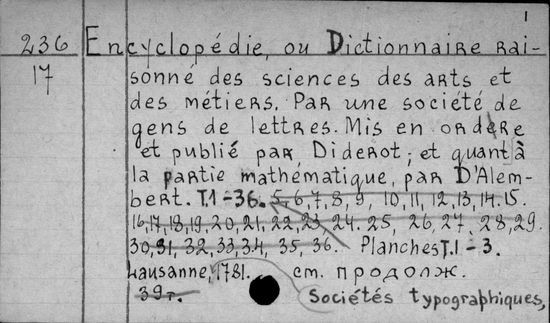 1
236 Encyclopédie, ou Dictionnaire rai-
17 sonné des sciences des arts et
des métiers. Par une société de
gens de lettres. Mis en ordere
et publié par Diderot; et quant à
la partie mathématique, par D'Alem-
bert. T.1-36. 5,6,7,8,9, 10,11,12,13,14.15.
16,17,18,19,20,21,22,23,24.25, 26,27,28,29.
30,31, 32,33,34, 35, 36. Planches T.1-3.
Lausanne, 1781. см. продолж.
39т. Sociétés typographiques,